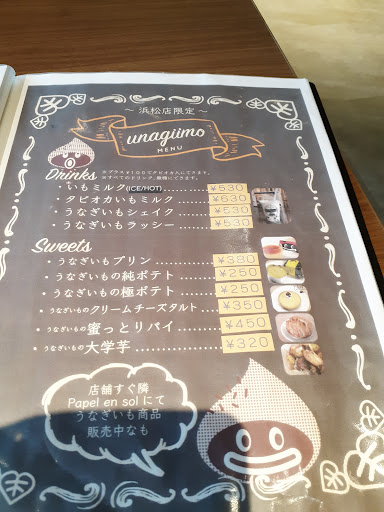 ～ 浜松店限定 ～
unagiimo
MENU
Drinks
※プラス¥100でタピオカ入にできます。
※すべてのドリンク、豆乳にできます。
・いもミルク(ICE/HOT) ¥530
・タピオカいもミルク ¥630
・うなぎいもシェイク ¥530
・うなぎいもラッシー ¥530
Sweets
・うなぎいもプリン ¥380
・うなぎいもの純ポテト ¥250
・うなぎいもの極ポテト ¥250
・うなぎいものクリームチーズタルト ¥350
・うなぎいもの蜜っとりパイ ¥450
・うなぎいもの大学芋 ¥320
店舗すぐ隣
Papel en sol にて
うなぎいも商品
販売中なも